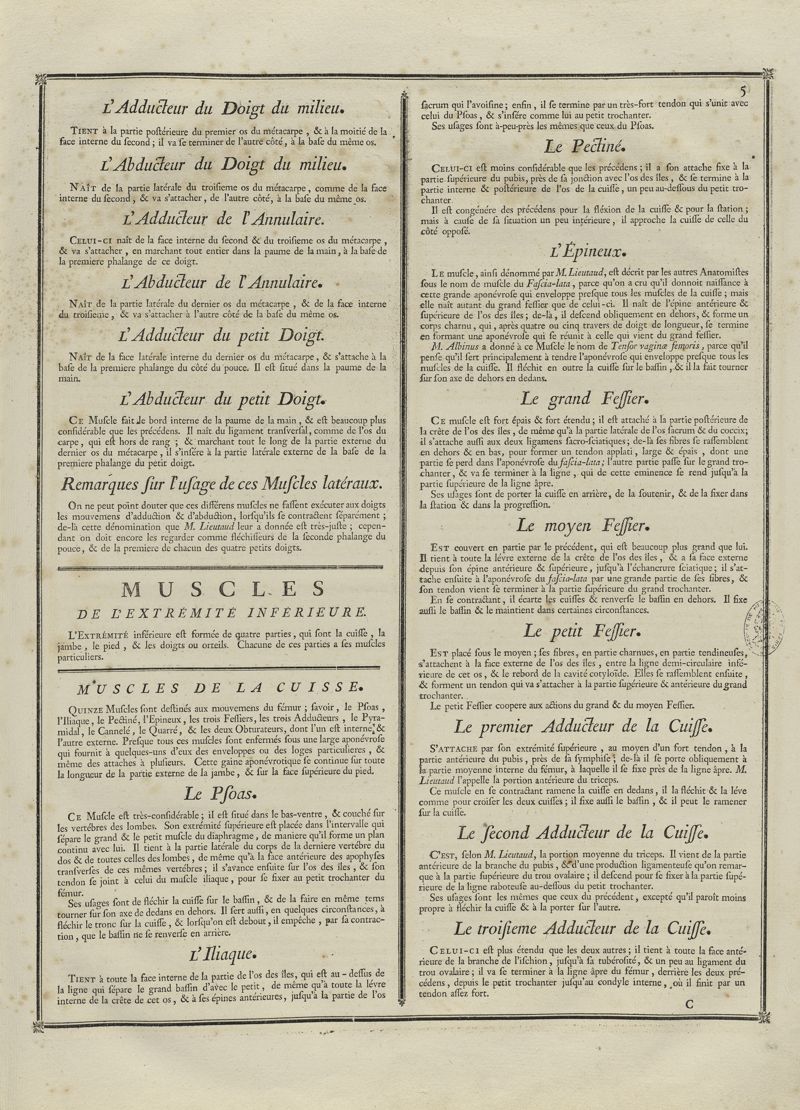 5
L'Adducteur du Doigt du milieu.
TIENT à la partie poſtérieure du premier os du métacarpe, & à la moitié de la
face interne du ſecond; il va ſe terminer de l'autre côté, à la baſe du même os.
L'Abducteur du Doigt du milieu.
NAÎT de la partie latérale du troiſieme os du métacarpe, comme de la face
interne du ſecond, & va s'attacher, de l'autre côté, à la baſe du même os.
L'Adducteur de l'Annulaire.
CELUI-CI naît de la face interne du ſecond & du troiſieme os du métacarpe,
& va s'attacher, en marchant tout entier dans la paume de la main, à la baſe de
la premiere phalange de ce doigt.
L'Abducteur de l'Annulaire.
NAÎT de la partie latérale du dernier os du métacarpe, & de la face interne
du troiſieme, & va s'attacher à l'autre côté de la baſe du même os.
L'Adducteur du petit Doigt.
NAÎT de la face latérale interne du dernier os du métacarpe, & s'attache à la
baſe de la premiere phalange du côté du pouce. Il eſt ſitué dans la paume de la
main.
L'Abducteur du petit Doigt.
CE Muſcle fait le bord interne de la paume de la main, & eſt beaucoup plus
conſidérable que les précédens. Il naît du ligament tranſverſal, comme de l'os du
carpe, qui eſt hors de rang; & marchant tout le long de la partie externe du
dernier os du métacarpe, il s'inſère à la partie latérale externe de la baſe de la
premiere phalange du petit doigt.
Remarques ſur l'uſage de ces Muſcles latéraux.
On ne peut point douter que ces différens muſcles ne faſſent exécuter aux doigts
les mouvement d'adduction & d'abduction, lorſqu'ils ſe contractent ſéparément;
de-là cette dénomination que M. Lieutaud leur a donnée eſt très-juſte; cepen-
dant on doit encore les regarder comme fléchiſſeurs de la ſeconde phalange du
pouce, & de la premiere de chacun des quatre petits doigts.
MUSCLES
DE L'EXTRÉMITÉ INFÉRIEURE.
L'EXTRÉMITÉ inférieure eſt formée de quatre parties, qui ſont la cuiſſe, la
jambe, le pied, & les doigts ou orteils. Chacune de ces parties a ſes muſcles
particuliers.
MUSCLES DE LA CUISSE.
QUINZE Muſcles ſont deſtinés aux mouvemens du fémur; ſavoir, le Pſoas,
l'Iliaque, le Pectiné, l'Epineux, les trois Feſſiers, les trois Adducteurs, le Pyra-
midal, le Cannelé, le Quarré, & les deux Obturateurs, dont l'un eſt interne, &
l'autre externe. Preſque tous ces muſcles ſont enfermés ſous une large aponévroſe
qui fournit à quelques-uns d'eux des enveloppes ou des loges particulieres, &
même des attaches à pluſieurs. Cette gaîne aponévrotique ſe continue ſur toute
la longueur de la partie externe de la jambe, & ſur la face ſupérieure du pied.
Le Pſoas.
CE Muſcle eſt très-conſidérable; il eſt ſitué dans le bas-ventre, & couché ſur
les vertébres des lombes. Son extrémité ſupérieure eſt placée dans l'intervalle qui
ſépare le grand & le petit muſcle du diaphragme, de maniere qu'il forme un plan
continu avec lui. Il tient à la partie latérale du corps de la derniere vertébre du
dos & de toutes celles des lombes, de même qu'à la face antérieure des apophyſes
tranſverſes de ces mêmes vertébres; il s'avance enſuite ſur l'os des îles, & ſon
tendon ſe joint à celui du muſcle iliaque, pour ſe fixer au petit trochanter du
fémur.
Ses uſages ſont de fléchir la cuiſſe ſur le baſſin, & de la faire en même tems
tourner ſur ſon axe de dedans en dehors. Il ſert auſſi, en quelques circonſtances, à
fléchir le tronc ſur la cuiſſe, & lorſqu'on eſt debout, il empêche, par ſa contrac-
tion, que le baſſin ne ſe renverſe en arrière.
L'Iliaque.
TIENT à toute la face interne de la partie de l'os des îles, qui eſt au-deſſus de
la ligne qui ſépare le grand baſſin d'avec le petit, de même qu'à toute la lévre
interne de la crête de cet os, & à ſes épines antérieures, juſqu'à la partie de l'os
ſacrum qui l'avoiſine; enfin, il ſe termine par un très-fort tendon qui s'unit avec
celui du Pſoas, & s'inſére comme lui au petit trochanter.
Ses uſages ſont à-peu-près les mêmes que ceux du Pſoas.
Le Pectiné.
CELUI-CI eſt moins conſidérable que les précédens; il a ſon attache fixe à la
partie ſupérieure du pubis, près de ſa jonction avec l'os des îles, & ſe termine à la
partie interne & poſtérieure de l'os de la cuiſſe, un peu au-deſſous du petit tro-
chanter
Il eſt congénére des précédens pour la fléxion de la cuiſſe & pour la ſtation;
mais à cauſe de ſa ſituation un peu intérieure, il approche la cuiſſe de celle du
côté oppoſé.
L'Épineux.
LE muſcle, ainſi dénommé par M. Lieutaud, eſt décrit par les autres Anatomiſtes
ſous le nom de muſcle du Faſcia-lata, parce qu'on a cru qu'il donnoit naiſſance à
cette grande aponévroſe qui enveloppe preſque tous les muſcles de la cuiſſe; mais
elle naît autant du grand feſſier que de celui-ci. Il naît de l'épine antérieure &
ſupérieure de l'os des îles; de-là, il deſcend obliquement en dehors, & forme un
corps charnu, qui, après quatre ou cinq travers de doigt de longueur, ſe termine
en formant une aponévroſe qui ſe réunit à celle qui vient du grand feſſier.
M. Albinus a donné à ce Muſcle le nom de Tenſor vaginæ femoris, parce qu'il
penſe qu'il ſert principalement à tendre l'aponévroſe qui enveloppe preſque tous les
muſcles de la cuiſſe. Il fléchit en outre la cuiſſe ſur le baſſin, & il la fait tourner
ſur ſon axe de dehors en dedans.
Le grand Feſſier.
CE muſcle eſt fort épais & fort étendu; il eſt attaché à la partie poſtérieure de
la crête de l'os des îles, de même qu'à la partie latérale de l'os ſacrum & du coccix;
il s'attache auſſi aux deux ligamens ſacro-ſciatiques; de-là ſes fibres ſe raſſemblent
en dehors & en bas, pour former un tendon applati, large & épais, dont une
partie ſe perd dans l'aponévroſe du faſcia-lata; l'autre partie paſſe ſur le grand tro-
chanter, & va ſe terminer à la ligne, qui de cette eminence ſe rend juſqu'à la
partie ſupérieure de la ligne âpre.
Ses uſages ſont de porter la cuiſſe en arrière, de la ſoutenir, & de la fixer dans
la ſtation & dans la progreſſion.
Le moyen Feſſier.
EST couvert en partie par le précédent, qui eſt beaucoup plus grand que lui.
Il tient à toute la lévre externe de la crête de l'os des îles, & a ſa face externe
depuis ſon épine antérieure & ſupérieure, juſqu'à l'échancrure ſciatique; il s'at-
tache enſuite à l'aponévroſe du faſcia-lata par une grande partie de ſes fibres, &
ſon tendon vient ſe terminer à la partie ſupérieure du grand trochanter.
En ſe contractant, il écarte les cuiſſes & renverſe le baſſin en dehors. Il fixe
auſſi le baſſin & le maintient dans certaines circonſtances.
Le petit Feſſier.
EST placé ſous le moyen; ſes fibres, en partie charnues, en partie tendineuſes,
s'attachent à la face externe de l'os des îles, entre la ligne demi-circulaire infé-
rieure de cet os, & le rebord de la cavité cotyloïde. Elles ſe raſſemblent enſuite,
& forment un tendon qui va s'attacher à la partie ſupérieure & antérieure du grand
trochanter.
Le petit Feſſier coopere aux actions du grand & du moyen Feſſier.
Le premier Adducteur de la Cuiſſe.
S'ATTACHE par ſon extrémité ſupérieure, au moyen d'un fort tendon, à la
partie antérieure du pubis, près de ſa ſymphiſe; de-là il ſe porte obliquement à
la partie moyenne interne du fémur, à laquelle il ſe fixe près de la ligne âpre. M.
Lieutaud l'appelle la portion antérieure du triceps.
Ce muſcle en ſe contractant ramene la cuiſſe en dedans, il la fléchit & la léve
comme pour croiſer les deux cuiſſes; il fixe auſſi le baſſin, & il peut le ramener
ſur la cuiſſe.
Le ſecond Adducteur de la Cuiſſe.
C'EST, ſelon M. Lieutaud, la portion moyenne du triceps. Il vient de la partie
antérieure de la branche du pubis, & d'une production ligamenteuſe qu'on remar-
que à la partie ſupérieure du trou ovalaire; il deſcend pour ſe fixer à la partie ſupé-
rieure de la ligne raboteuſe au-deſſous du petit trochanter.
Ses uſages ſont les mêmes que ceux du précédent, excepté qu'il paroît moins
propre à fléchir la cuiſſe & à la porter ſur l'autre.
Le troiſieme Adducteur de la Cuiſſe.
CELUI-CI eſt plus étendu que les deux autres; il tient à toute la face anté-
rieure de la branche de l'iſchion, juſqu'à ſa tubéroſité, & un peu au ligament du
trou ovalaire; il va ſe terminer à la ligne âpre du fémur, derrière les deux pré-
cédens, depuis le petit trochanter juſqu'au condyle interne, où il finit par un
tendon aſſez fort.
C